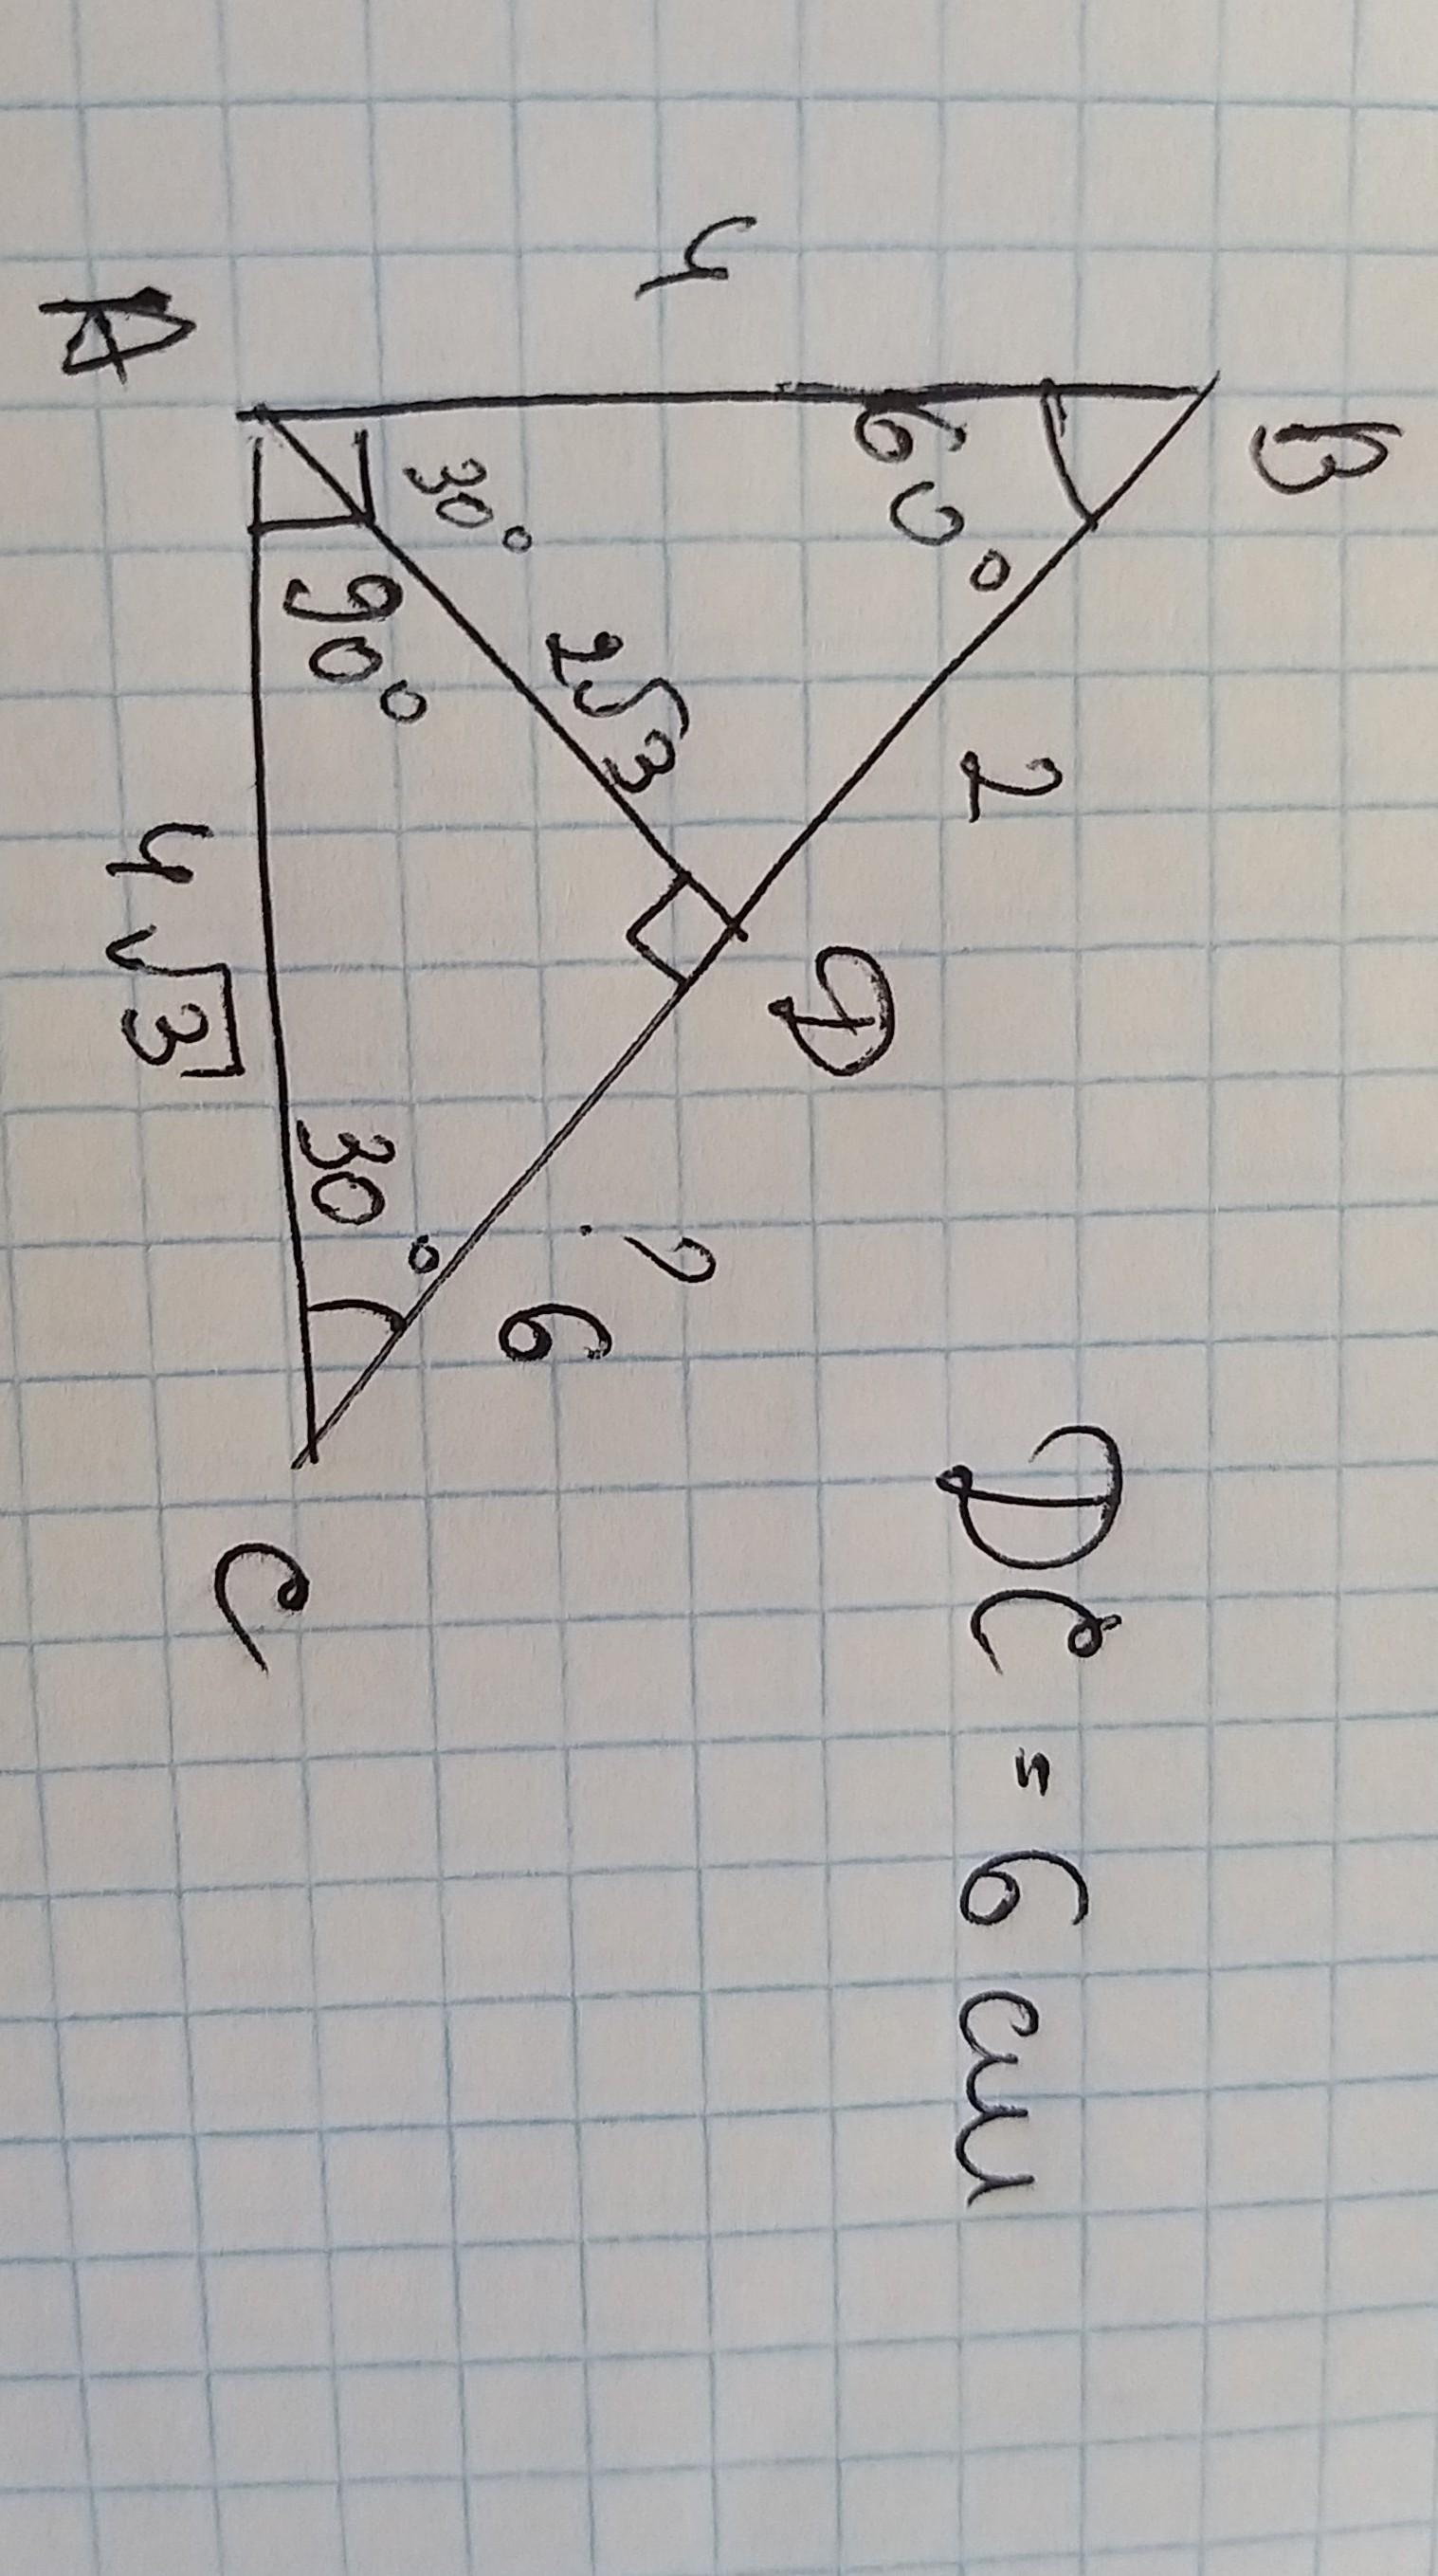 B
4
60°
2
D
30°
2√3
? 6
90°
30°
A
4√3
C
DC = 6 см